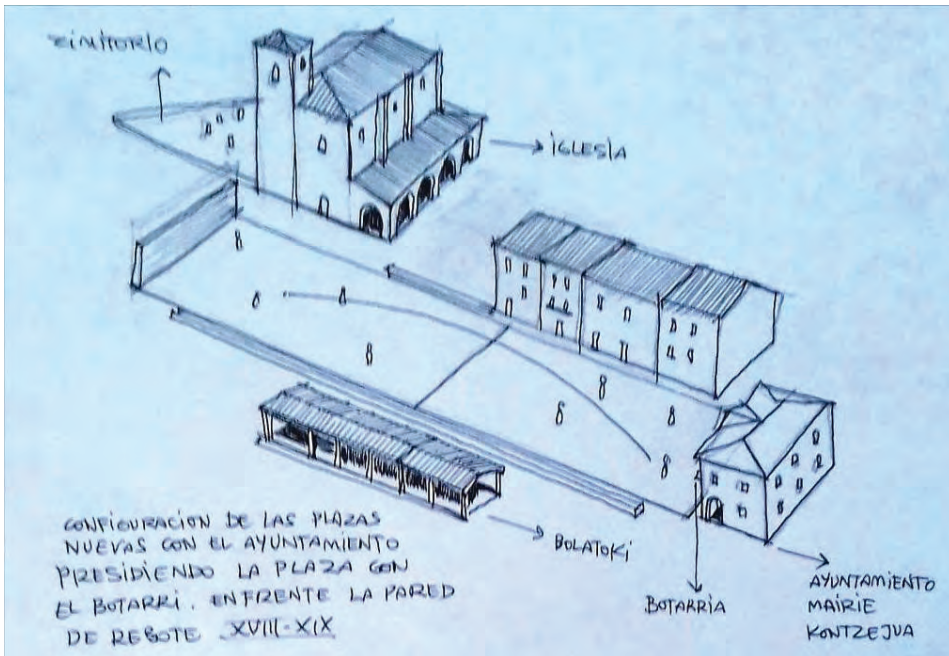 ZIMITORIO
IGLESIA
BOLATOKI
BOTARRIA
AYUNTAMIENTO
MAIRIE
KONTZEJUA
CONFIGURACION DE LAS PLAZAS
NUEVAS CON EL AYUNTAMIENTO
PRESIDIENDO LA PLAZA CON
EL BOTARRI. ENFRENTE LA PARED
DE REBOTE XVIII-XIX